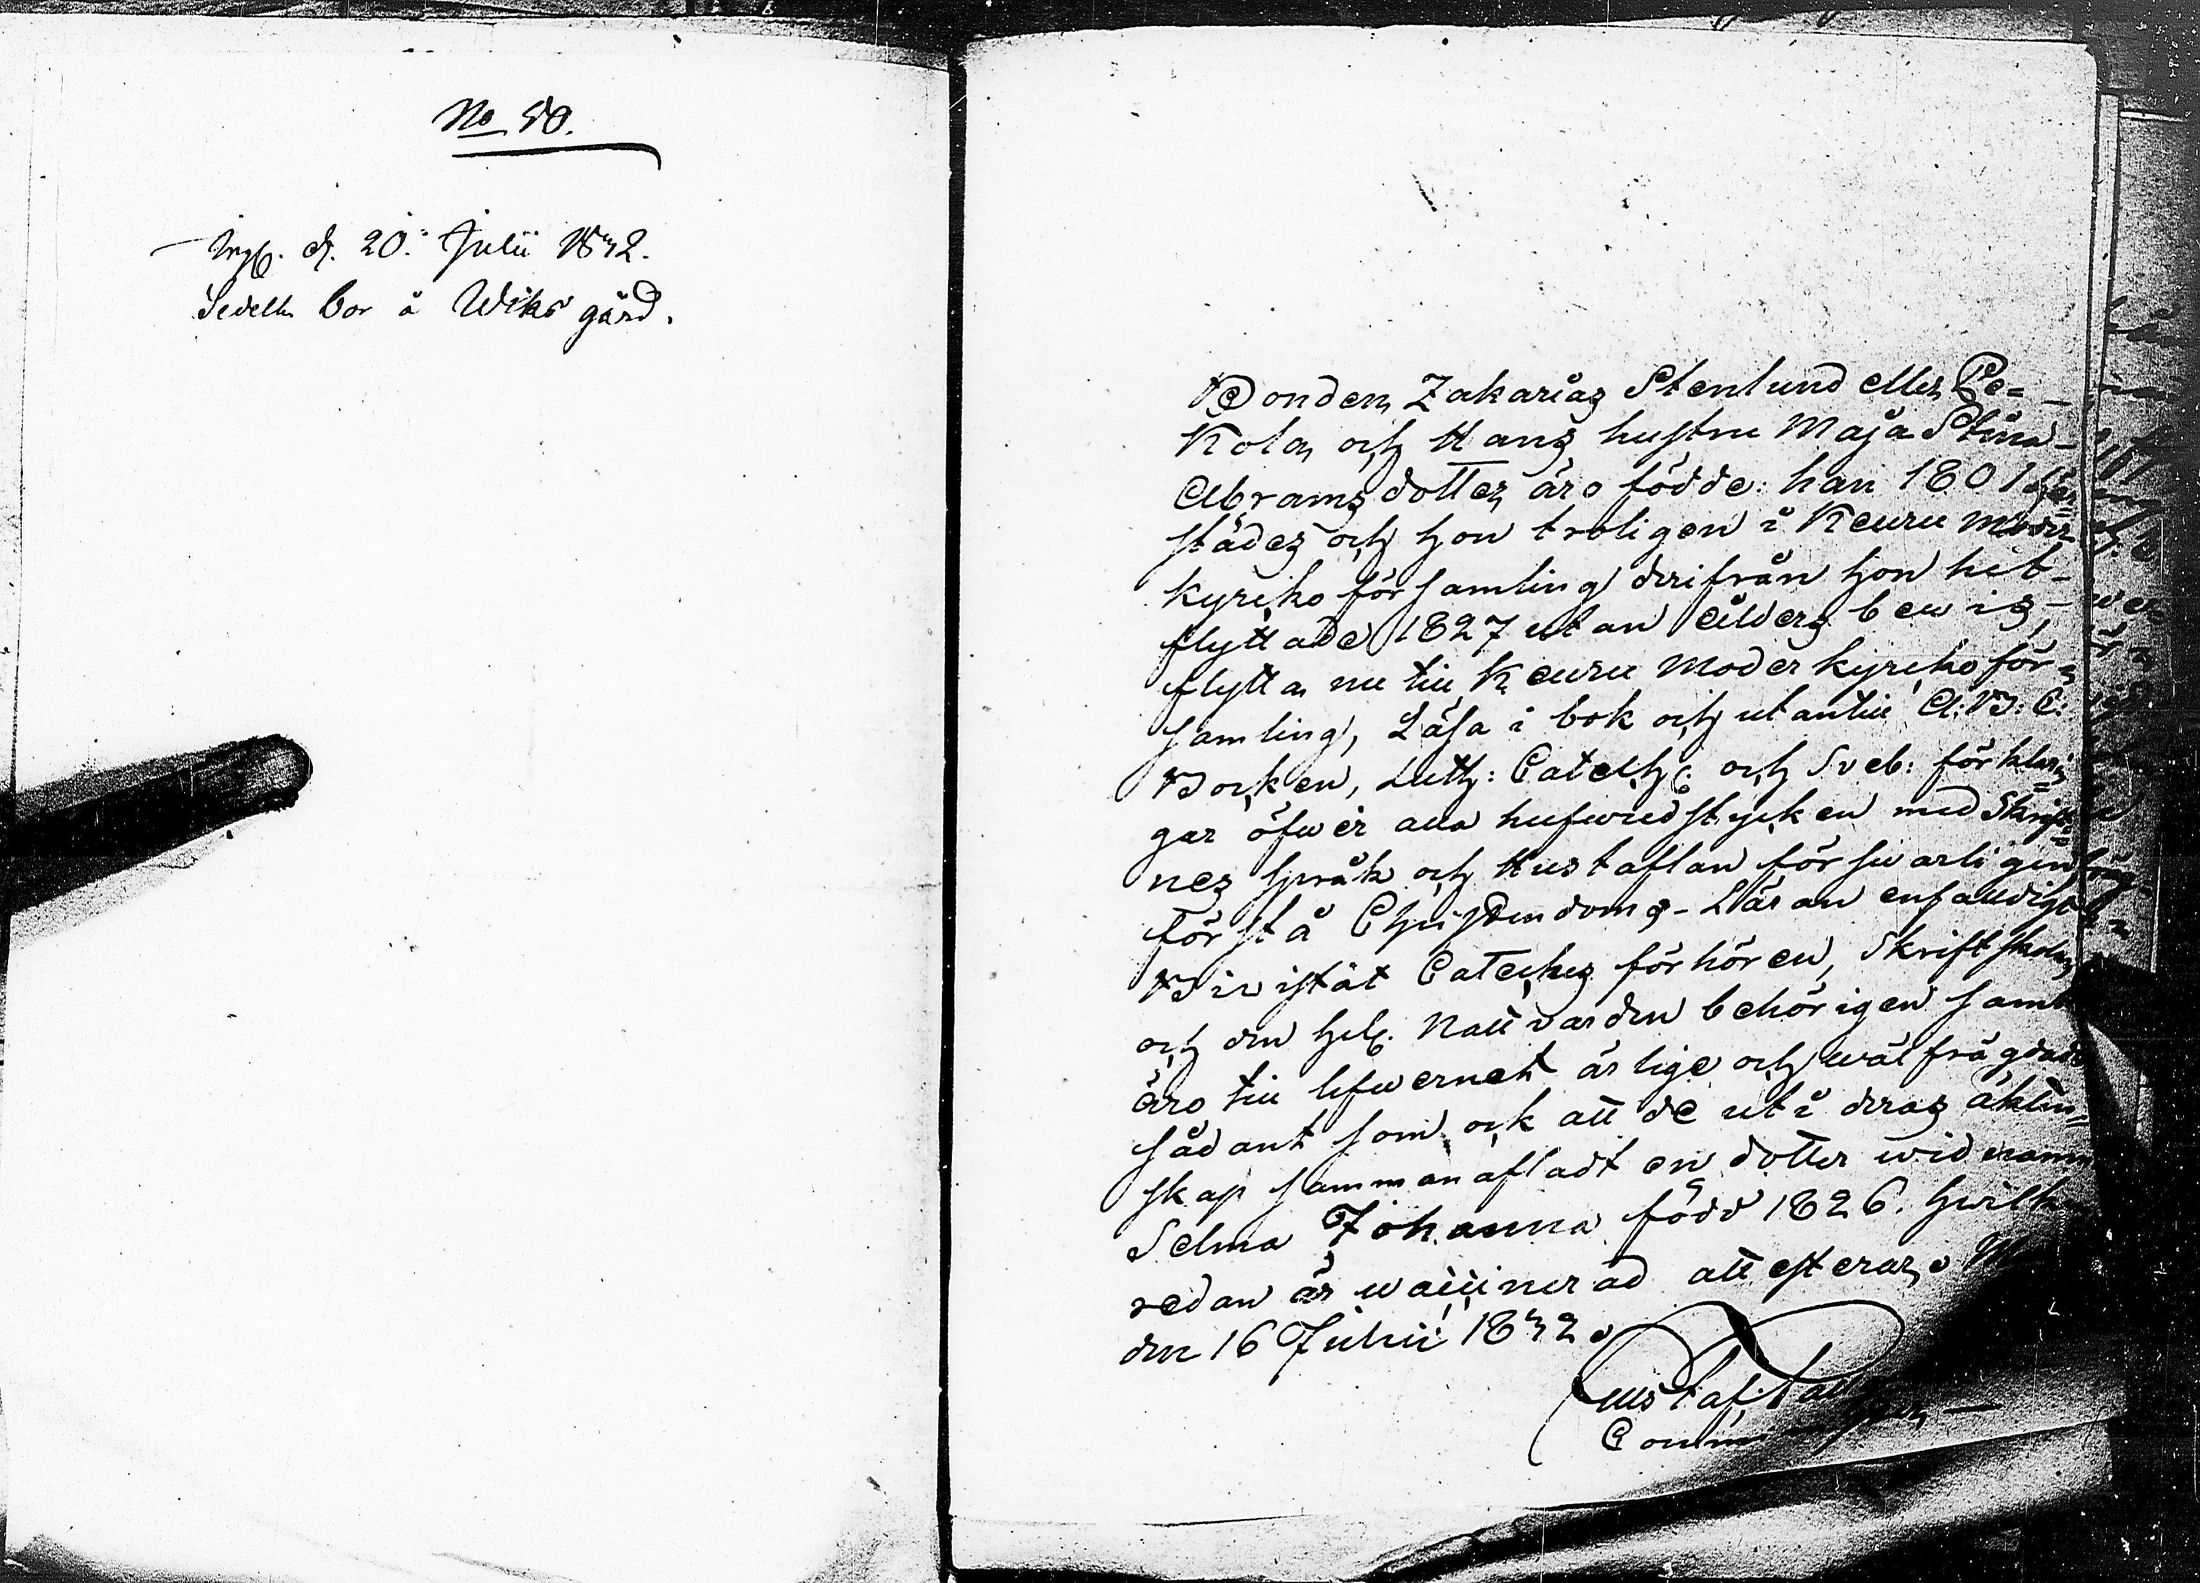 No 50.
Ingl. d. 20. Julii 1832.
Sedeln bor å Wiks gård.
Bonden Zakarias Stenlund eller Pe=
kola och Hans hustru Maja Stina
Abramsdotter äro födde: han 1801 här
städes och hon troligen i Keuru moder
kyrcko församling derifrån hon hit-
flyttade 1827 utan ålders bewis,
flytta nu till Keuru Moder kyrcko för=
samling, Läsa i bok och utantill A:B:C:
Bocken, Luth: Catech: och Sveb: förklarin
gar öfwer alla hufwudstycken med Skrift=
nes språk och Hustaflan försvarligen
förstå Christendoms-Läran enfaldigt
Biwistat Cateches förhören, Skriftskolan
och den hel. Nattvarden behörigen samt
äro till lefwernet ärlige och wälfrägdade
sådant som ock att de uti deras äkten=
skap sammanaflat en dotter wid namn
Selma Johanna född 1826. hwilk
redan är waccinerad attesterar,
den 16 Julii 1832.
Gustaf